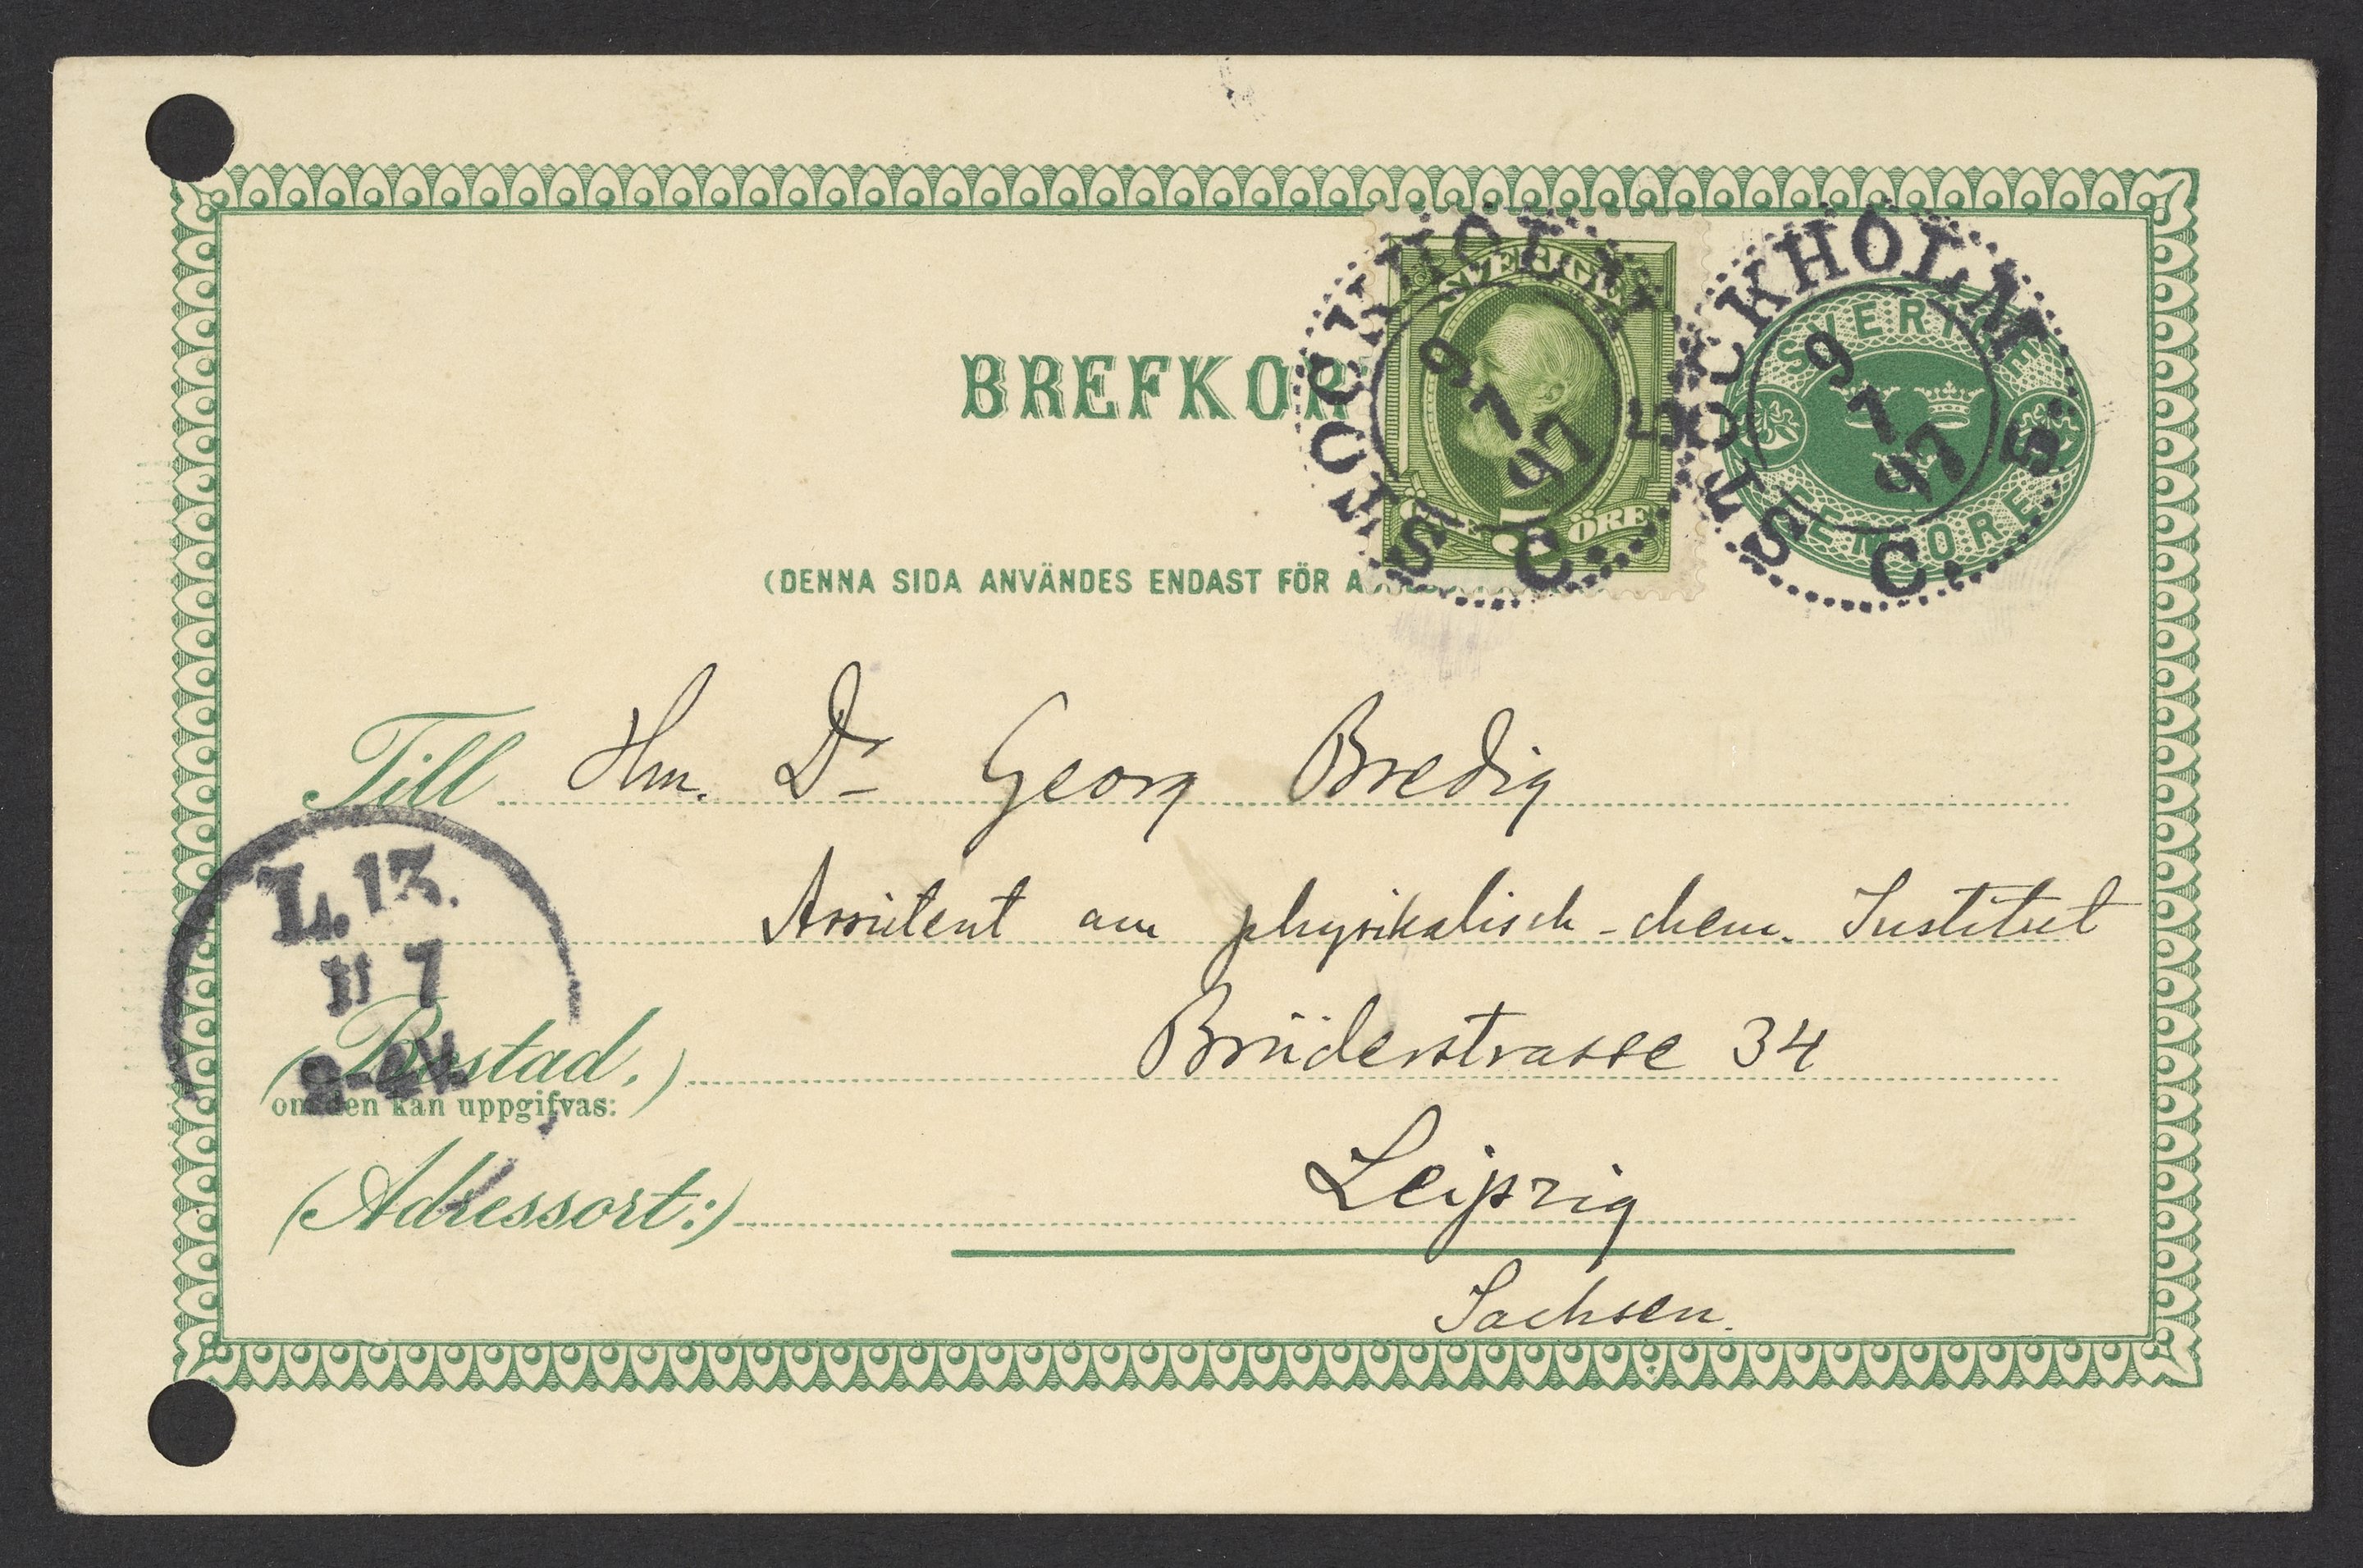 BREFKOR
SVERIGE
ÖRE 5 ÖRE
SVERIGE
FEM ÖRE
STOCKHOLM 5
9
7
97
C
STOCKHOLM 5
9
7
97
C
(DENNA SIDA ANVÄNDES ENDAST FÖR
Till Hrn. Dr Georg Bredig
Assistent am physikalisch-chem. Institut
L. 13.
11 7
(Bostad,) Brüderstrasse 34
om den kan uppgifvas:
(Adressort:) Leipzig
Sachsen.